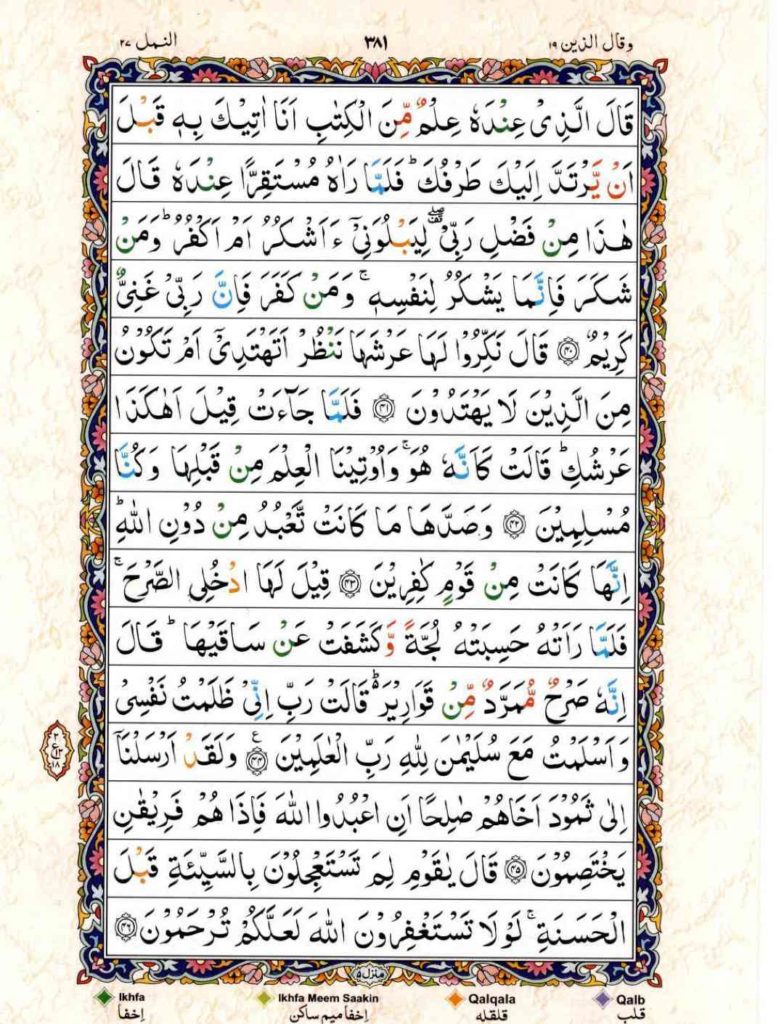 وقال الذين ١٩ ٣٨١ النمل ٢٧
قَالَ الَّذِیْ عِنْدَهٗ عِلْمٌ مِّنَ الْكِتٰبِ اَنَا اٰتِیْكَ بِهٖ قَبْلَ
اَنْ یَّرْتَدَّ اِلَیْكَ طَرْفُكَ ؕ فَلَمَّا رَاٰهُ مُسْتَقِرًّا عِنْدَهٗ قَالَ
هٰذَا مِنْ فَضْلِ رَبِّیْ ۖ۫ لِیَبْلُوَنِیْۤ ءَاَشْكُرُ اَمْ اَكْفُرُ ؕ وَمَنْ
شَكَرَ فَاِنَّمَا یَشْكُرُ لِنَفْسِهٖ ۚ وَمَنْ كَفَرَ فَاِنَّ رَبِّیْ غَنِیٌّ
كَرِیْمٌ ﴿۴۰﴾ قَالَ نَكِّرُوْا لَهَا عَرْشَهَا نَنْظُرْ اَتَهْتَدِیْۤ اَمْ تَكُوْنُ
مِنَ الَّذِیْنَ لَا یَهْتَدُوْنَ ﴿۴۱﴾ فَلَمَّا جَآءَتْ قِیْلَ اَهٰكَذَا
عَرْشُكِ ؕ قَالَتْ كَاَنَّهٗ هُوَ ۚ وَاُوْتِیْنَا الْعِلْمَ مِنْ قَبْلِهَا وَكُنَّا
مُسْلِمِیْنَ ﴿۴۲﴾ وَصَدَّهَا مَا كَانَتْ تَّعْبُدُ مِنْ دُوْنِ اللّٰهِ ؕ
اِنَّهَا كَانَتْ مِنْ قَوْمٍ كٰفِرِیْنَ ﴿۴۳﴾ قِیْلَ لَهَا ادْخُلِی الصَّرْحَ ۚ
فَلَمَّا رَاَتْهُ حَسِبَتْهُ لُجَّةً وَّكَشَفَتْ عَنْ سَاقَیْهَا ؕ قَالَ
اِنَّهٗ صَرْحٌ مُّمَرَّدٌ مِّنْ قَوَارِیْرَ ؕ۬ قَالَتْ رَبِّ اِنِّیْ ظَلَمْتُ نَفْسِیْ
وَاَسْلَمْتُ مَعَ سُلَیْمٰنَ لِلّٰهِ رَبِّ الْعٰلَمِیْنَ ﴿۴۴﴾ ع وَلَقَدْ اَرْسَلْنَاۤ
۳ ع ۱۳ ۱۸
اِلٰی ثَمُوْدَ اَخَاهُمْ صٰلِحًا اَنِ اعْبُدُوا اللّٰهَ فَاِذَا هُمْ فَرِیْقٰنِ
یَخْتَصِمُوْنَ ﴿۴۵﴾ قَالَ یٰقَوْمِ لِمَ تَسْتَعْجِلُوْنَ بِالسَّیِّئَةِ قَبْلَ
الْحَسَنَةِ ۚ لَوْلَا تَسْتَغْفِرُوْنَ اللّٰهَ لَعَلَّكُمْ تُرْحَمُوْنَ ﴿۴۶﴾
منزل ۵
Ikhfa Ikhfa Meem Saakin Qalqala Qalb
إخفا إخفا ميم ساكن قلقله قلب